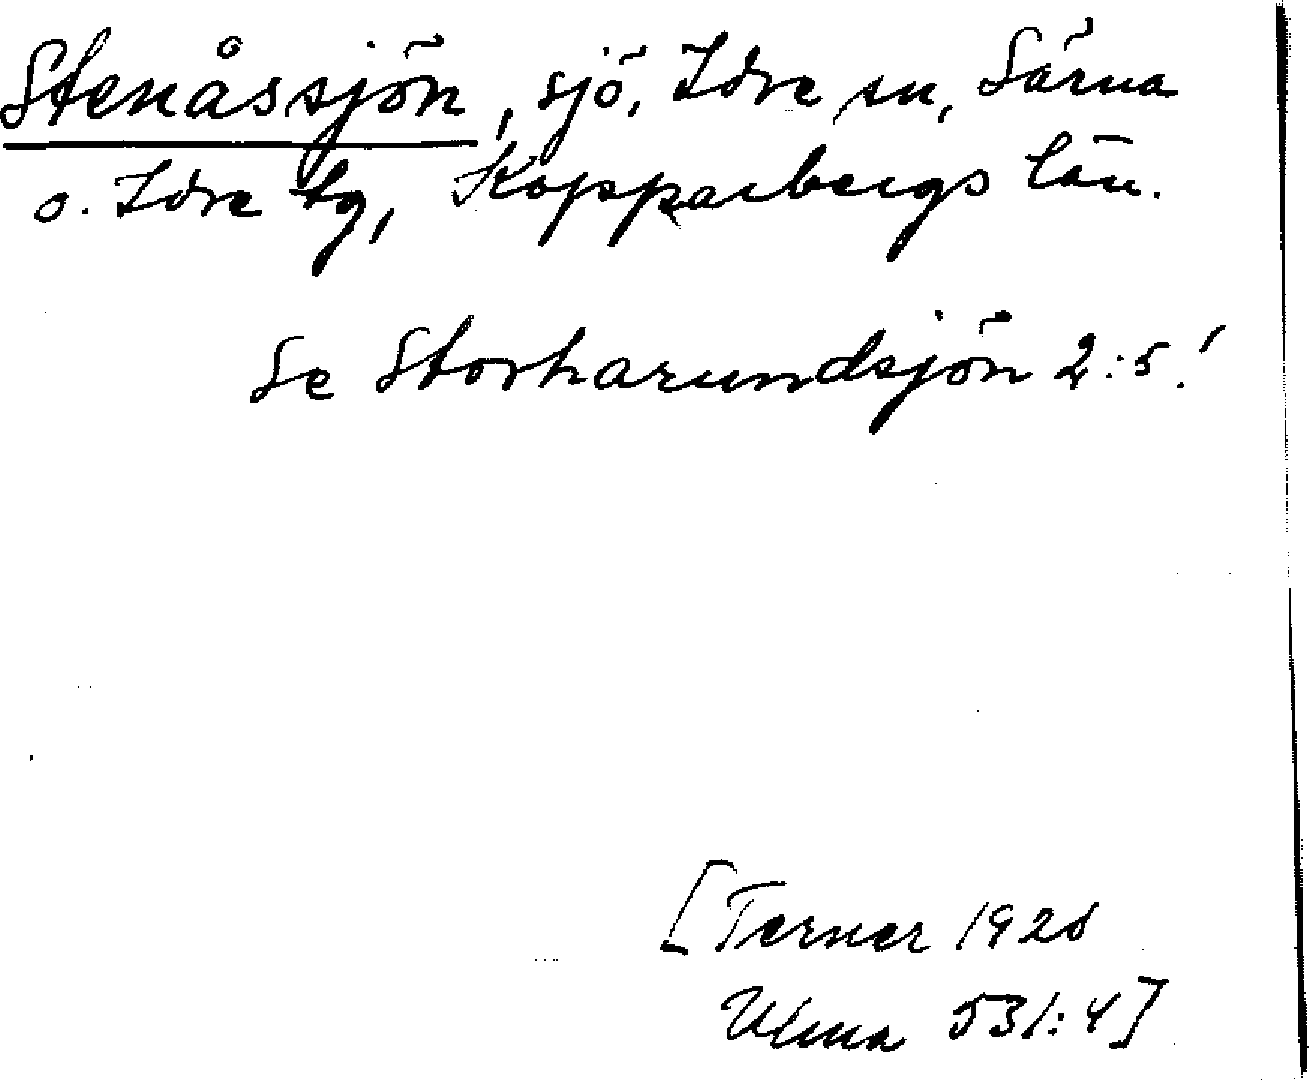 Stenåssjön, sjö, Idre sn, Särna
o. Idre tg, Kopparbergs län.
Se Storharundsjön 2:5!
[Terner 1928
Ulma 531:4]